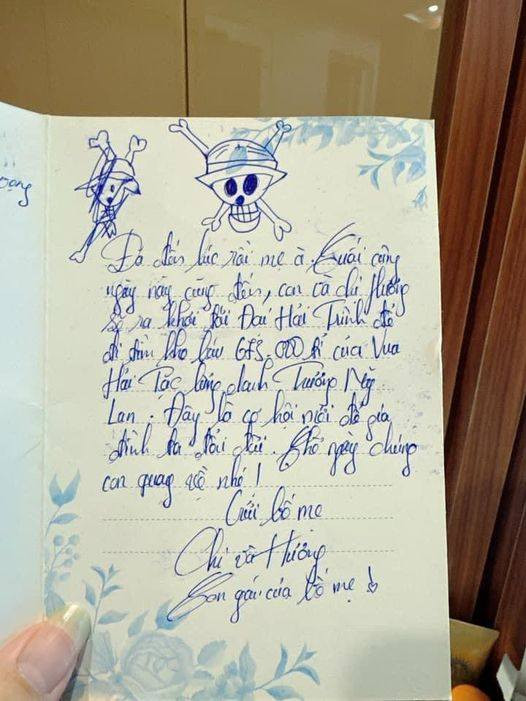 oạng
Đã đến lúc rồi mẹ ạ. Cuối cùng
ngày này cũng đến, con và chị Hường
sẽ ra khơi tới Đại Hải Trình để
đi tìm kho báu 673.000 tỉ của Vua
Hải Tặc lừng danh Trương Mỹ
Lan. Đây là cơ hội mới để gia
đình ta đổi đời. Chờ ngày chúng
con quay về nhé!
Gửi bố mẹ
Chi và Hường
Con gái của bố mẹ